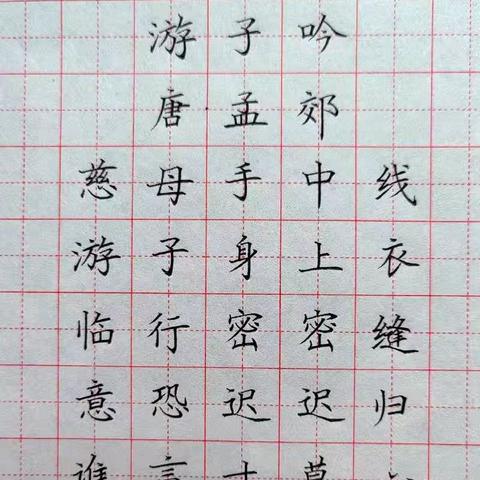 游子吟
唐孟郊
慈母手中线
游子身上衣
临行密密缝
意恐迟迟归
谁言寸草